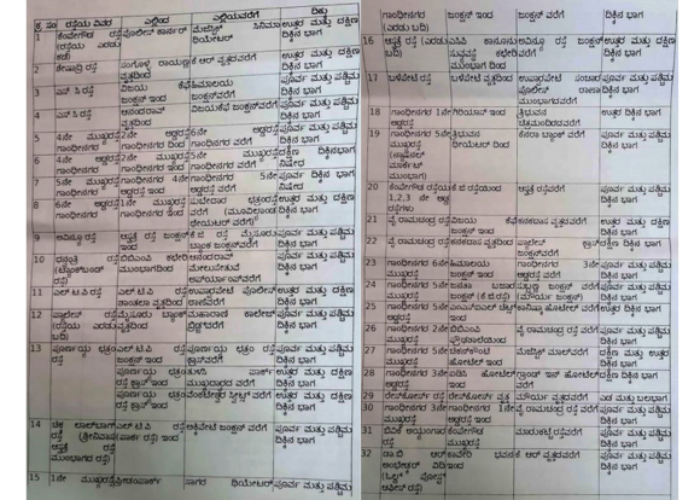 ಕ್ರ. ಸಂ ರಸ್ತೆಯ ವಿವರ ಎಲ್ಲಿಂದ ಎಲ್ಲಿಯವರೆಗೆ ದಿಕ್ಕು
1 ಕೆಂಪೇಗೌಡ ರಸ್ತೆ ಪೊಲೀಸ್ ಕಾರ್ನರ್ ಮೆಜೆಸ್ಟಿಕ್ ಸಿನಿಮಾ ಉತ್ತರ ಮತ್ತು ದಕ್ಷಿಣ
(ರಸ್ತೆಯ ಎರಡು ಥಿಯೇಟರ್ ದಿಕ್ಕಿನ ಭಾಗ
2 ಶೇಷಾದ್ರಿ ರಸ್ತೆ ಸಂಗೊಳ್ಳಿ ರಾಯಣ್ಣ ಕೆ ಆರ್ ವೃತ್ತದವರೆಗೆ ಉತ್ತರ ಮತ್ತು ದಕ್ಷಿಣ
ವೃತ್ತದಿಂದ ದಿಕ್ಕಿನ ಭಾಗ
3 ಎಸ್ ಸಿ ರಸ್ತೆ ವಿಜಯ ಕೆಫೆ ಹಿಮಾಲಯ ಪೂರ್ವ ಮತ್ತು ಪಶ್ಚಿಮ
ಜಂಕ್ಷನ್ ಇಂದ ಜಂಕ್ಷನ್‌ವರೆಗೆ ದಿಕ್ಕಿನ ಭಾಗ
4 ಎಸ್ ಸಿ ರಸ್ತೆ ಆನಂದರಾವ್ ವಿಜಯಕೆಫೆ ಜಂಕ್ಷನ್‌ವರೆಗೆ ಪೂರ್ವ ಮತ್ತು ಪಶ್ಚಿಮ
ವೃತ್ತದಿಂದ ದಿಕ್ಕಿನ ಭಾಗ
5 4ನೇ ಮುಖ್ಯರಸ್ತೆ 2ನೇ ಅಡ್ಡರಸ್ತೆ 6ನೇ ಅಡ್ಡರಸ್ತೆ ಪೂರ್ವ ಮತ್ತು ಪಶ್ಚಿಮ
ಗಾಂಧೀನಗರ ಗಾಂಧೀನಗರ ದಿಂದ ಗಾಂಧೀನಗರ ವರೆಗೆ ದಿಕ್ಕಿನ ಭಾಗ
6 4ನೇ ಅಡ್ಡರಸ್ತೆ 2ನೇ ಮುಖ್ಯರಸ್ತೆ 5ನೇ ಮುಖ್ಯರಸ್ತೆ ದಕ್ಷಿಣ ದಿಕ್ಕಿನಭಾಗ
ಗಾಂಧೀನಗರ ಗಾಂಧೀನಗರ ಇಂದ ಗಾಂಧೀನಗರ ವರೆಗೆ ನಿಷೇಧ
7 5ನೇ ಮುಖ್ಯರಸ್ತೆ ಗಾಂಧೀನಗರ 4ನೇ ಗಾಂಧೀನಗರ 5ನೇ ಪೂರ್ವ ದಿಕ್ಕಿನ ಭಾಗ
ಗಾಂಧೀನಗರ ಅಡ್ಡರಸ್ತೆ ಇಂದ ಅಡ್ಡರಸ್ತೆ ವರೆಗೆ ನಿಷೇಧ
8 6ನೇ ಅಡ್ಡರಸ್ತೆ 1ನೇ ಮುಖ್ಯರಸ್ತೆ ಸುಬೇದಾರ ಛತ್ರಂರಸ್ತೆ ಉತ್ತರ ಮತ್ತು ದಕ್ಷಿಣ
ಗಾಂಧೀನಗರ ಗಾಂಧೀನಗರ ಇಂದ ವರೆಗೆ (ಮೂವಿಲ್ಯಾಂಡ ದಿಕ್ಕಿನ ಭಾಗ
ಥೇಯಟರ್ ವರೆಗೆ)
9 ಅವೆನ್ಯೂ ರಸ್ತೆ ಆಸ್ಪತ್ರೆ ರಸ್ತೆ ಜಂಕ್ಷನ್ ಕೆ.ಜಿ ರಸ್ತೆ ಮೈಸೂರು ಪೂರ್ವ ಮತ್ತು ಪಶ್ಚಿಮ
ಇಂದ ಬ್ಯಾಂಕ ಜಂಕ್ಷನ್‌ವರೆಗೆ ದಿಕ್ಕಿನ ಭಾಗ
10 ಧನ್ವಂತ್ರಿ ರಸ್ತೆ ಬಿಬಿಎಂಪಿ ಕಛೇರಿ ಆನಂದರಾವ್ ಪೂರ್ವ ಮತ್ತು ಪಶ್ಚಿಮ
(ಟ್ಯಾಂಕ್‌ಬಂಡ್ ಮುಂಭಾಗದಿಂದ ಮೇಲುಸೇತುವೆ ದಿಕ್ಕಿನ ಭಾಗ
ರಸ್ತೆ)
11 ಎಲ್ ಟಿ ಪಿ ರಸ್ತೆ ಎಲ್ ಟಿ ಪಿ ರಸ್ತೆ ಉಪಾರಪೇಟೆ ಪೊಲೀಸ್ ಉತ್ತರ ಮತ್ತು ದಕ್ಷಿಣ
ಶಾಂತಲಾ ವೃತ್ತದಿಂದ ಠಾಣೆವರೆಗೆ ದಿಕ್ಕಿನ ಭಾಗ
12 ಪ್ಯಾಲೇಸ್ ರಸ್ತೆ ಮೈಸೂರು ಬ್ಯಾಂಕ್ ಮಹಾರಾಣಿ ಕಾಲೇಜ್ ಪೂರ್ವ ಮತ್ತು ಪಶ್ಚಿಮ
(ರಸ್ತೆಯ ಎರಡು ವೃತ್ತದಿಂದ ಬ್ರಿಡ್ಜ್‌ವರೆಗೆ ದಿಕ್ಕಿನ ಭಾಗ
ಬದಿ)
13 ಪೂರ್ಣಯ್ಯ ಛತ್ರಂ ಎಲ್ ಟಿ ಪಿ ರಸ್ತೆ ಪೂರ್ಣಯ್ಯ ಛತ್ರಂ ರಸ್ತೆ ಪೂರ್ವ ಮತ್ತು ಪಶ್ಚಿಮ
ರಸ್ತೆ ಜಂಕ್ಷನ್ ಇಂದ ಕ್ರಾಸ್‌ವರೆಗೆ ದಿಕ್ಕಿನ ಭಾಗ
ಪೂರ್ಣಯ್ಯ ಛತ್ರಂ ತುಳಸಿ ಪಾರ್ಕ್ ಪೂರ್ವ ಮತ್ತು ಪಶ್ಚಿಮ
ರಸ್ತೆ ಕ್ರಾಸ್ ಇಂದ ಮುಖ್ಯದ್ವಾರದ ವರೆಗೆ ದಿಕ್ಕಿನ ಭಾಗ
ಪೂರ್ಣಯ್ಯ ಛತ್ರಂ ವೆಂಕಟೇಶ್ವರ ಸ್ವೀಟ್ಸ್ ವರೆಗೆ ಉತ್ತರ ಮತ್ತು ದಕ್ಷಿಣ
ರಸ್ತೆ ಕ್ರಾಸ್ ಇಂದ ದಿಕ್ಕಿನ ಭಾಗ
14 ಚಿಕ್ಕ ಲಾಲ್‌ಬಾಗ್ ಎಲ್ ಟಿ ಪಿ ರಸ್ತೆ ಅಕ್ಕಿಪೇಟೆ ಜಂಕ್ಷನ್ ವರೆಗೆ ಪೂರ್ವ ಮತ್ತು ಪಶ್ಚಿಮ
ರಸ್ತೆ (ಶ್ರೀನಿವಾಸ ಪಾರ್ಕ ರಸ್ತೆ) ಇಂದ ದಿಕ್ಕಿನ ಭಾಗ
ಆಸ್ಪತ್ರೆ ರಸ್ತೆ
ಮುಂಭಾಗದ ರಸ್ತೆ)
15 1ನೇ ಮುಖ್ಯರಸ್ತೆ ಸಾಗರ ಥಿಯೇಟರ್ ಪೂರ್ವ ಮತ್ತು ಪಶ್ಚಿಮ
ಗಾಂಧೀನಗರ ಜಂಕ್ಷನ್ ಇಂದ ಜಂಕ್ಷನ್ ವರೆಗೆ ದಿಕ್ಕಿನ ಭಾಗ
(ಎರಡು ಬದಿ)
16 ಆಸ್ಪತ್ರೆ ರಸ್ತೆ (ಎರಡು ಎಸಿಪಿ ಕಾನೂನು ಅವಿನ್ಯೂ ರಸ್ತೆ ಜಂಕ್ಷನ್ ಉತ್ತರ ಮತ್ತು ದಕ್ಷಿಣ
ಬದಿ) ಸುವ್ಯವಸ್ಥೆ ಕಛೇರಿ ವರೆಗೆ ದಿಕ್ಕಿನ ಭಾಗ
ಮುಂಭಾಗ ದಿಂದ
17 ಬಳೇಪೇಟೆ ರಸ್ತೆ ಬಳೇಪೇಟೆ ವೃತ್ತದಿಂದ ಉಪಾರಪೇಟೆ ಸಂಚಾರ ಪೂರ್ವ ಮತ್ತು ಪಶ್ಚಿಮ
ಪೊಲೀಸ್ ಠಾಣಾ ದಿಕ್ಕಿನ ಭಾಗ
ಮುಂಭಾಗದವರೆಗೆ
18 ಗಾಂಧೀನಗರ 1ನೇ ತ್ರಿಭುವನ ಉತ್ತರ ದಿಕ್ಕಿನ ಭಾಗ
ಅಡ್ಡರಸ್ತೆ ಚಿತ್ರಮಂದಿರದವರೆಗೆ
19 ಗಾಂಧೀನಗರ 5ನೇ ತ್ರಿಭುವನ ಕೆನರಾ ಬ್ಯಾಂಕ್ ವರೆಗೆ ಪೂರ್ವ ಮತ್ತು ಪಶ್ಚಿಮ
ಮುಖ್ಯರಸ್ತೆ ಥೀಯೇಟರ್ ದಿಂದ ದಿಕ್ಕಿನ ಭಾಗ
(ನ್ಯಾಷನಲ್
ಮಾರ್ಕೆಟ್
ಮುಂಭಾಗ)
20 ಕೆಂಪೇಗೌಡ ರಸ್ತೆಯ ಕೆ ಜಿ ರಸ್ತೆಯಿಂದ ಆಸ್ಪತ್ರೆ ರಸ್ತೆವರೆಗೆ ಪೂರ್ವ ಮತ್ತು ಪಶ್ಚಿಮ
1,2,3 ನೇ ಅಡ್ಡ ದಿಕ್ಕಿನ ಭಾಗ
ರಸ್ತೆಗಳು
21 ವೈ ರಾಮಚಂದ್ರ ರಸ್ತೆ ವಿಜಯ ಕೆಫೆ ಕನಕದಾಸ ವೃತ್ತದವರೆಗೆ ಉತ್ತರ ಮತ್ತು ದಕ್ಷಿಣ
ಜಂಕ್ಷನ್ ಇಂದ ದಿಕ್ಕಿನ ಭಾಗ
22 ವೈ ರಾಮಚಂದ್ರ ರಸ್ತೆ ಕನಕದಾಸ ವೃತ್ತದಿಂದ ಪ್ಯಾಲೇಸ್ ಕ್ರಾಸ್ ದಕ್ಷಿಣ ದಿಕ್ಕಿನ ಭಾಗ
ಜಂಕ್ಷನ್‌ವರೆಗೆ
23 ಗಾಂಧೀನಗರ 6ನೇ ಹಿಮಾಲಯ ಗಾಂಧೀನಗರ 3ನೇ ಪೂರ್ವ ಮತ್ತು ಪಶ್ಚಿಮ
ಮುಖ್ಯರಸ್ತೆ ಜಂಕ್ಷನ್ ಇಂದ ಅಡ್ಡರಸ್ತೆ ವರೆಗೆ ದಿಕ್ಕಿನ ಭಾಗ
24 ಗಾಂಧೀನಗರ 5ನೇ ಜನತಾ ಬಜಾರ ಸುಬ್ಬಣ್ಣ ಜಂಕ್ಷನ್ ವರೆಗೆ ಪೂರ್ವ ಮತ್ತು ಪಶ್ಚಿಮ
ಮುಖ್ಯರಸ್ತೆ ಜಂಕ್ಷನ್ (ಕೆ.ಜಿ.ರಸ್ತೆ) (ಮೌರ್ಯ ಜಂಕ್ಷನ್) ದಿಕ್ಕಿನ ಭಾಗ
25 ಗಾಂಧೀನಗರ 5ನೇ ಕಾನಿಷ್ಕಾ ಹೋಟೆಲ್ ವರೆಗೆ ಉತ್ತರ ಮತ್ತು ದಕ್ಷಿಣ
ಅಡ್ಡರಸ್ತೆ ಇಂದ ದಿಕ್ಕಿನ ಭಾಗ
26 ಗಾಂಧೀನಗರ 2ನೇ ಬಿಬಿಎಂಪಿ ವೈ ರಾಮಚಂದ್ರ ರಸ್ತೆ ವರೆಗೆ ಪೂರ್ವ ಮತ್ತು ಪಶ್ಚಿಮ
ಮುಖ್ಯರಸ್ತೆ ಪ್ರೌಢಶಾಲೆಯಿಂದ ದಿಕ್ಕಿನ ಭಾಗ
27 ಗಾಂಧೀನಗರ 5ನೇ ಮೆಜೆಸ್ಟಿಕ್ ಮಾಲ್‌ವರೆಗೆ ದಕ್ಷಿಣ ಮತ್ತು ಉತ್ತರ
ಮುಖ್ಯರಸ್ತೆ ಹೋಟೆಲ್ ಇಂದ ದಿಕ್ಕಿನ ಭಾಗ
28 ಗಾಂಧೀನಗರ 3ನೇ ಗ್ರಾಂಡ್ ಇನ್ ಹೋಟೆಲ್ ದಕ್ಷಿಣ ದಿಕ್ಕಿನ ಭಾಗ
ಅಡ್ಡರಸ್ತೆ ಇಂದ ವರೆಗೆ
29 ರೇಸ್‌ಕೋರ್ಸ್ ರಸ್ತೆ ರೇಸ್‌ಕೋರ್ಸ್ ವೃತ್ತ ಮೌರ್ಯ ವೃತ್ತದವರೆಗೆ ಎಡ ಮತ್ತು ಬಲಭಾಗ
30 ಗಾಂಧೀನಗರ 3ನೇ ಗಾಂಧೀನಗರ 1ನೇ ವೈ ರಾಮಚಂದ್ರ ರಸ್ತೆ ವರೆಗೆ ಪೂರ್ವ ಮತ್ತು ಪಶ್ಚಿಮ
ಮುಖ್ಯರಸ್ತೆ ಅಡ್ಡರಸ್ತೆ ಇಂದ ದಿಕ್ಕಿನ ಭಾಗ
31 ಬಿವಿಕೆ ಅಯ್ಯಂಗಾರ ಕೆಂಪೇಗೌಡ ಮಾರುಕಟ್ಟೆ ರಸ್ತೆವರೆಗೆ ಪೂರ್ವ ಮತ್ತು ಪಶ್ಚಿಮ
ರಸ್ತೆ ಮುಖ್ಯರಸ್ತೆ ದಿಕ್ಕಿನ ಭಾಗ
32 ಡಾ ಬಿ ಆರ್ ಕಾವೇರಿ ಭವನ ಕೆ ಆರ್ ವೃತ್ತದವರೆಗೆ ಪೂರ್ವ ಮತ್ತು ಪಶ್ಚಿಮ
ಅಂಬೇಡ್ಕರ್ ವೀದಿ ಇಂದ ದಿಕ್ಕಿನ ಭಾಗ
(ಓಲ್ಡ್ ಪೋಸ್ಟ್
ಆಫೀಸ್ ರಸ್ತೆ)